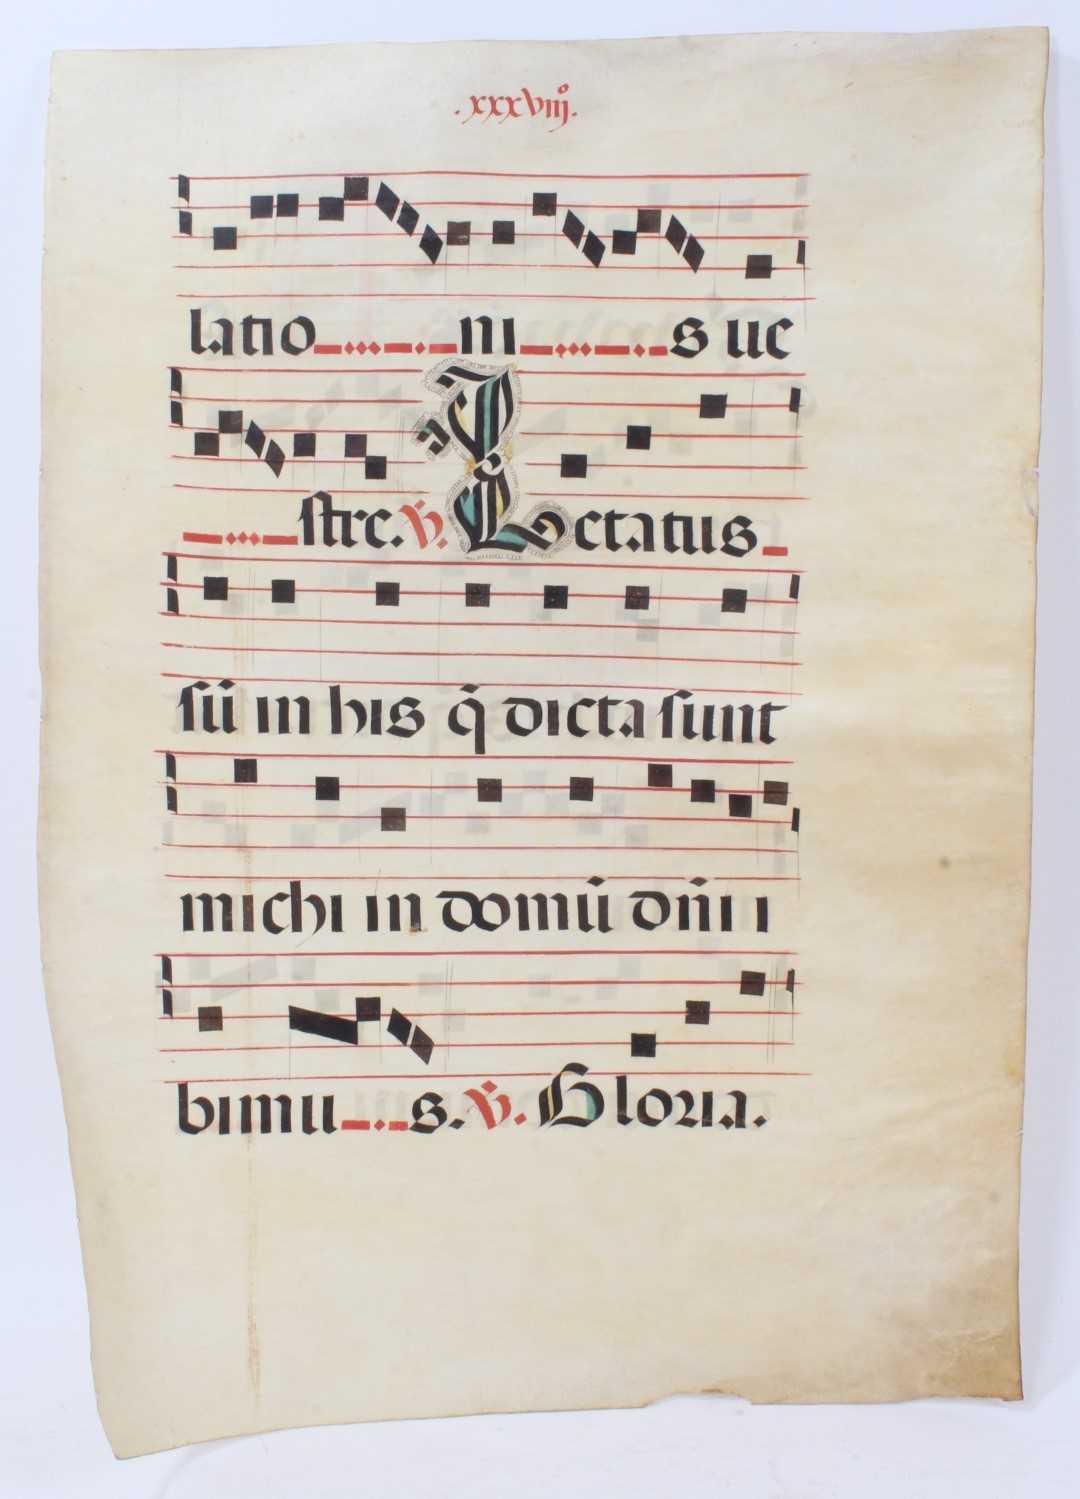 .xxxviiijº.
latio ni s ue
stre. ℣. Letatus
sū in his q̄ dicta sunt
michi in domū dn̄i i
bimu s. ℣. Gloria.